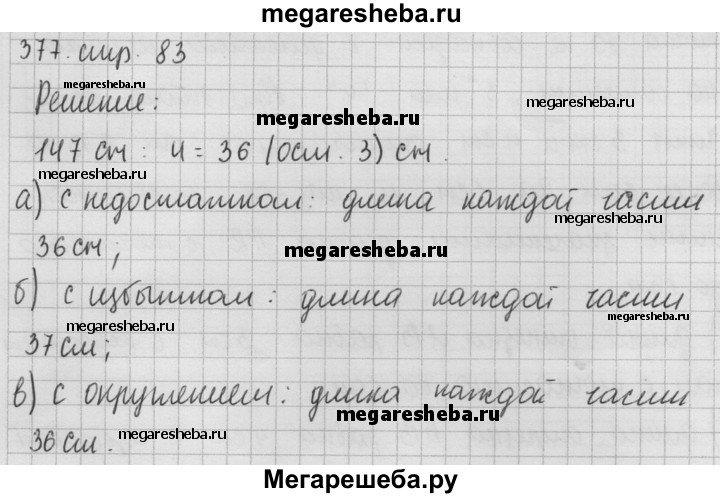 megaresheba.ru
377. стр. 83
megaresheba.ru
Решение:
megaresheba.ru
megaresheba.ru
147 см : 4 = 36 (ост. 3) см.
megaresheba.ru
а) с недостатком: длина каждой части
megaresheba.ru
36 см;
megaresheba.ru
б) с избытком: длина каждой части
megaresheba.ru
megaresheba.ru
37 см;
в) с округлением: длина каждой части
megaresheba.ru
36 см.
megaresheba.ru
Мегарешеба.ру